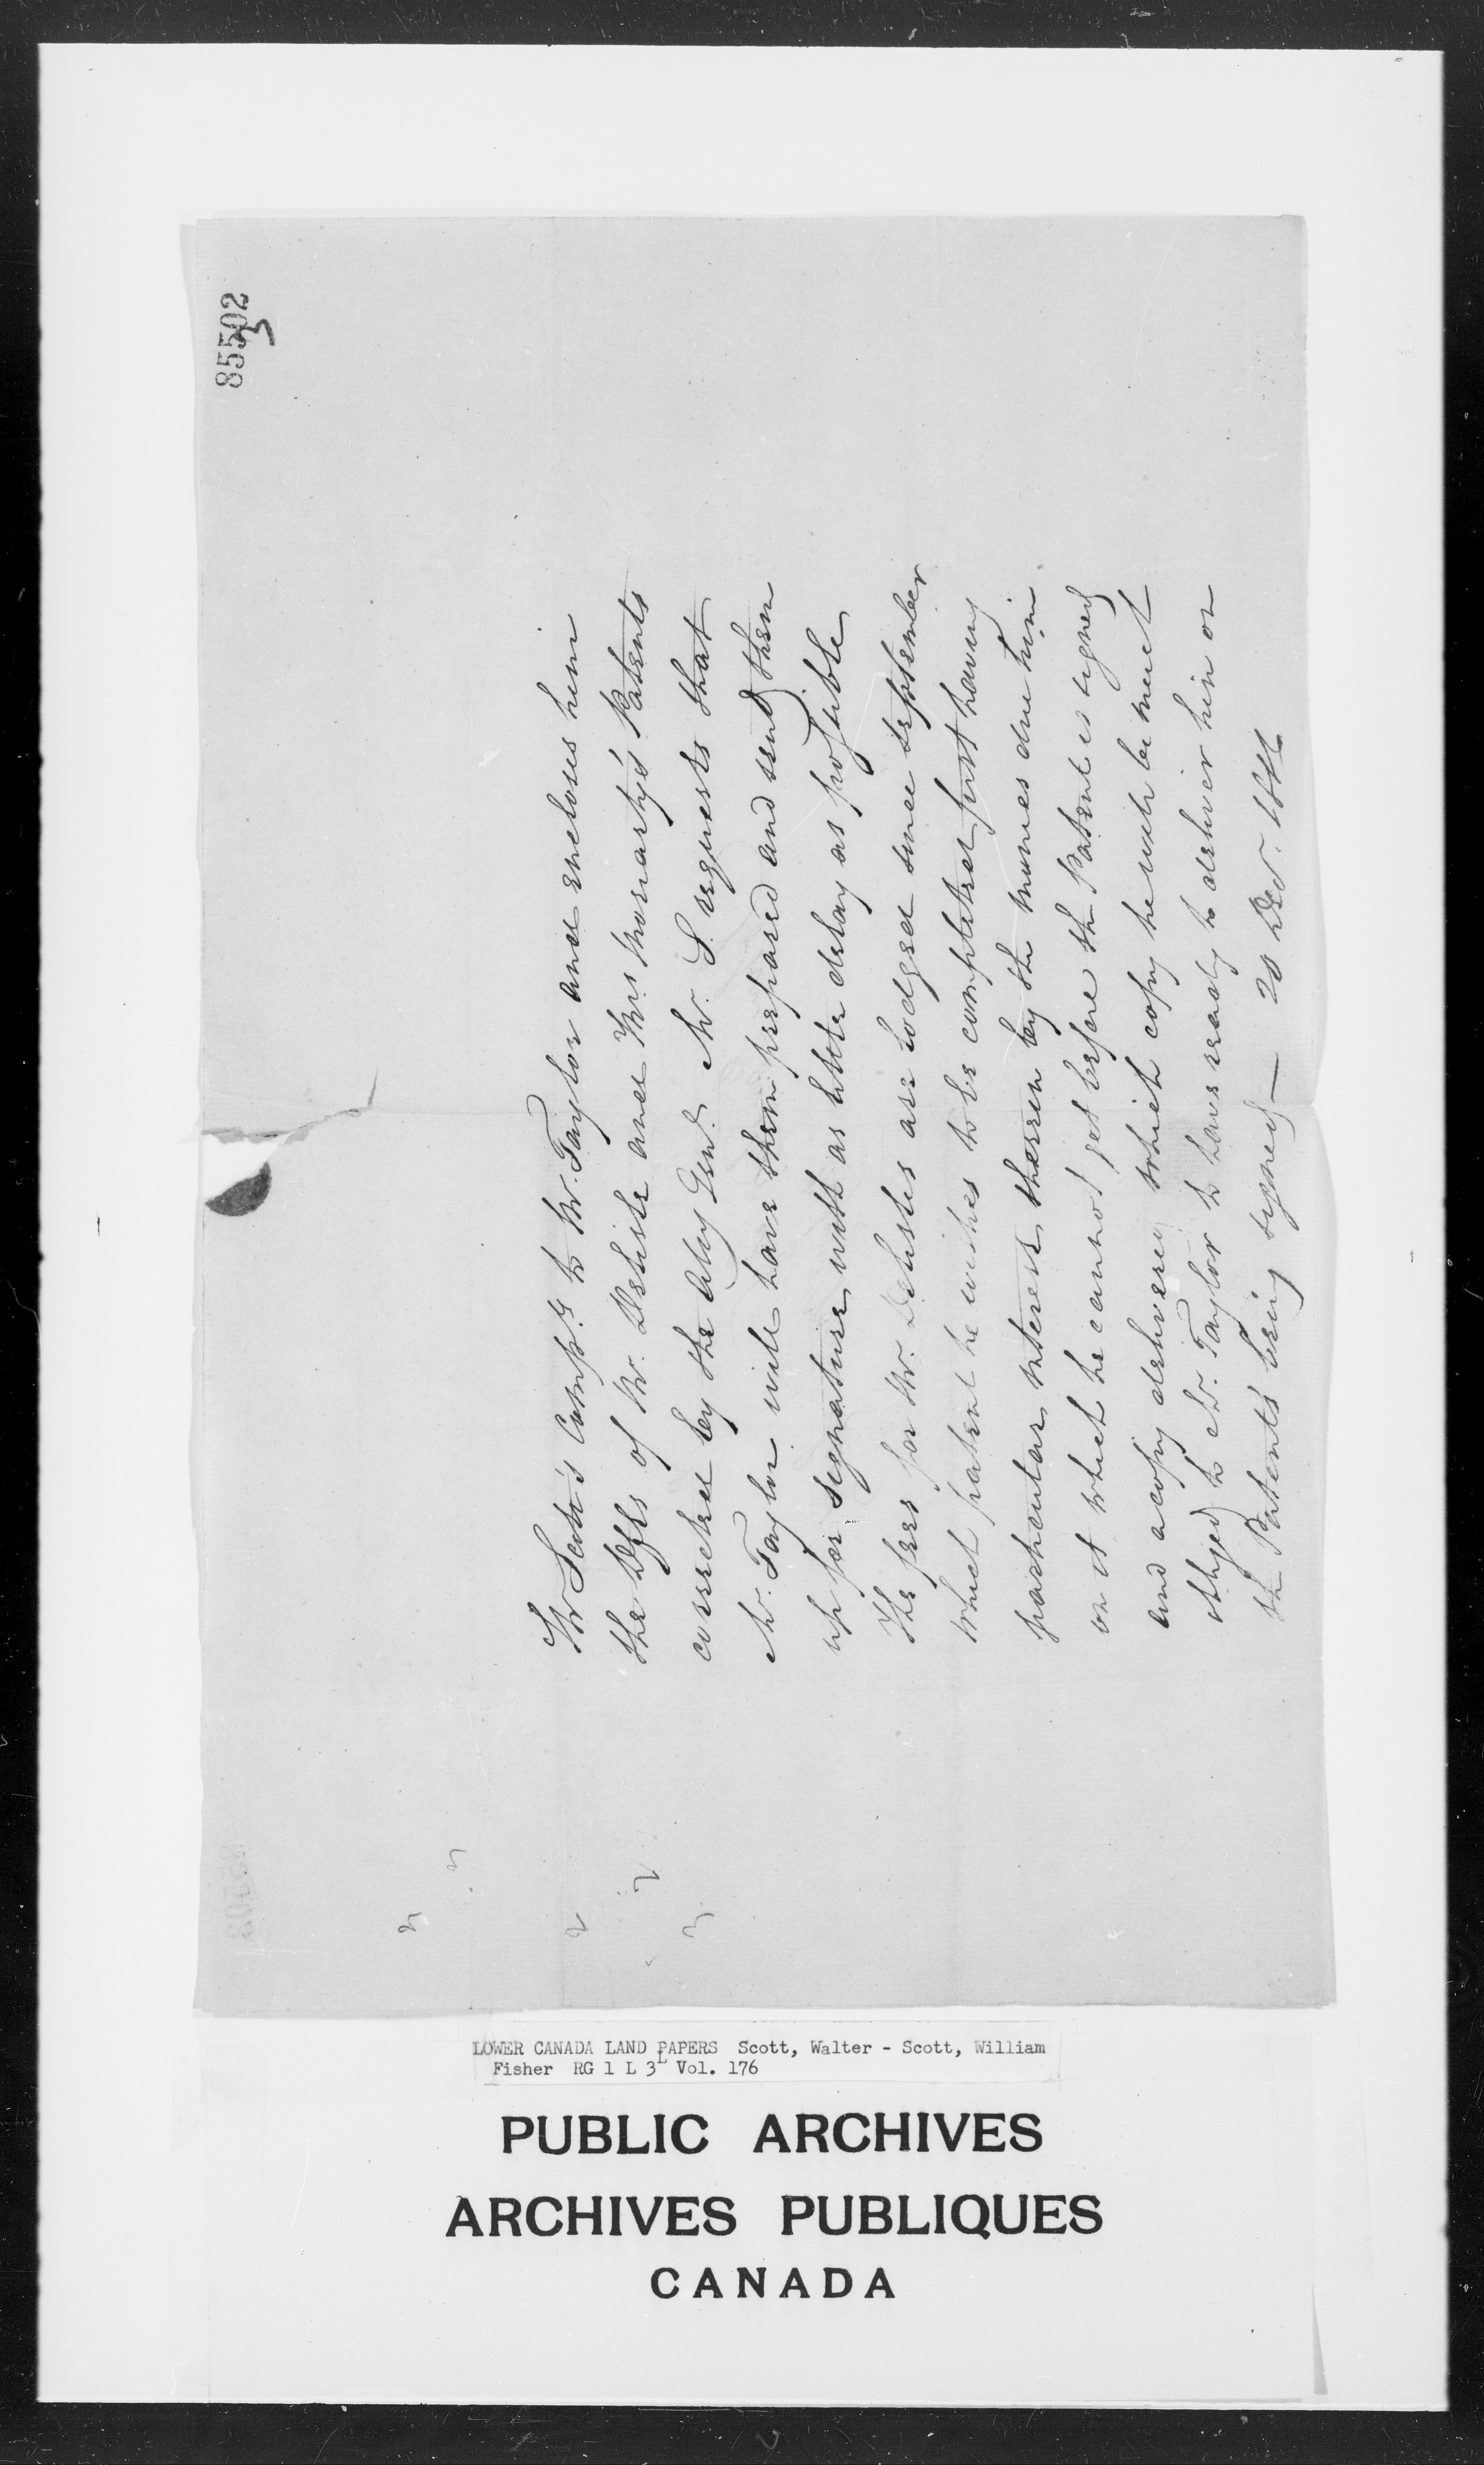 85502
3
Mr Scott's Compts to Mr. Taylor and encloses him
the Dfts of Mr. Delisle and Mrs Moriarty's Patents
corrected by the Atty Genl. Mr. S. requests that
Mr. Taylor will have them prepared and send them
up for signature with as little delay as possible
The fees for Mr. Delisles are lodged since September
which patent he wishes to be completed first having
particular interest therein by the monies due him
on it which he cannot get before the Patent is signed
and a copy delivered which copy he will be much
obliged to Mr. Taylor to have ready to deliver him on
the Patents being signed — 20 Decr.
LOWER CANADA LAND PAPERS Scott, Walter - Scott, William
Fisher RG 1 L 3L Vol. 176
PUBLIC ARCHIVES
ARCHIVES PUBLIQUES
CANADA